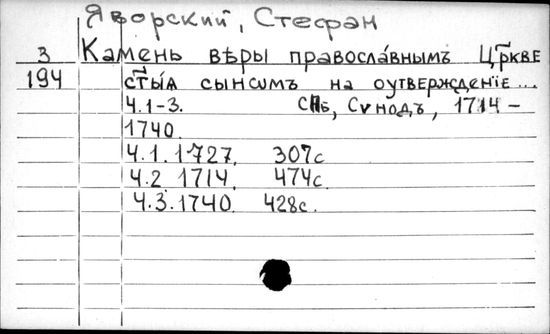 Яворский, Стефан
3 Камень вѣры православнымъ Цр҃кве
194 ст҃ы́ѧ сынѡмъ на оутвержденїе...
Ч.1-3. СПб, Сѵнодъ, 1714-
1740.
Ч.1. 1727. 307с
Ч.2 1714. 474с.
Ч.3. 1740. 428с.